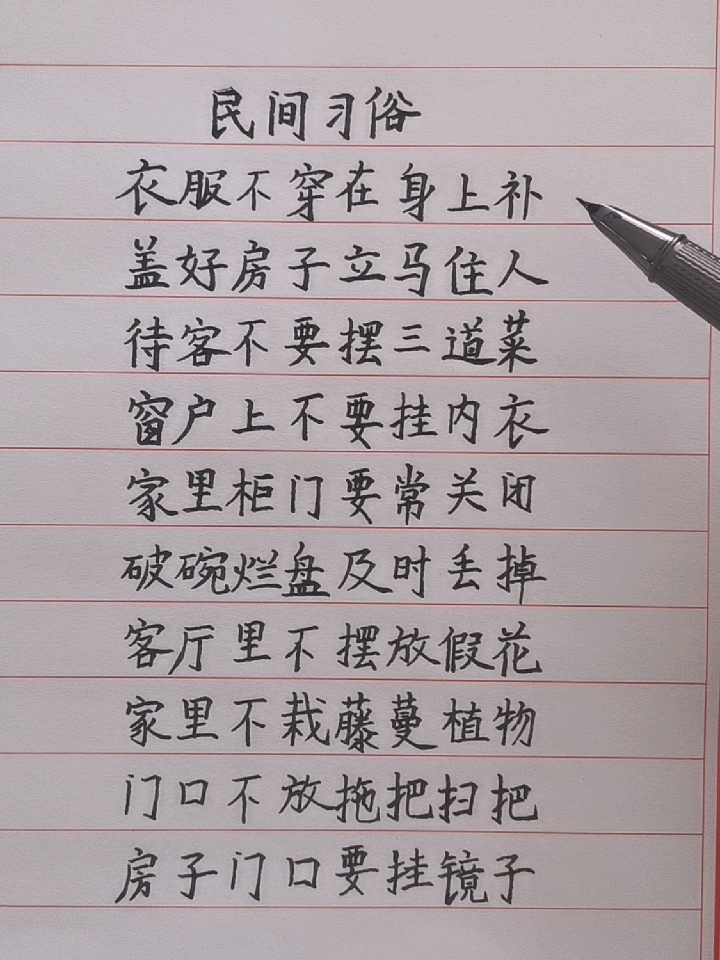 民间习俗
衣服不穿在身上补
盖好房子立马住人
待客不要摆三道菜
窗户上不要挂内衣
家里柜门要常关闭
破碗烂盘及时丢掉
客厅里不摆放假花
家里不栽藤蔓植物
门口不放拖把扫把
房子门口要挂镜子